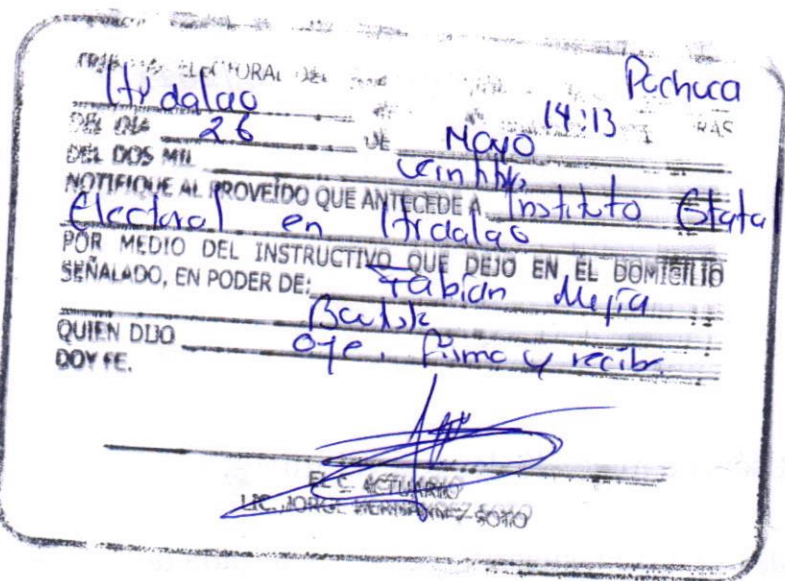 ELECTORAL DEL Pachuca
Hidalgo 14:13 RAS
DEL DIA 26 DE Mayo
DEL DOS MIL
NOTIFIQUE AL PROVEIDO QUE ANTECEDE A Instituto Estatal
Electoral en Hidalgo
POR MEDIO DEL INSTRUCTIVO QUE DEJO EN EL DOMICILIO
SEÑALADO, EN PODER DE: Fabian Mejia
QUIEN DIJO oye, firma y recibe.
DOY FE.
EL C. ACTUARIO
LIC. JORGE HERNANDEZ SOTO